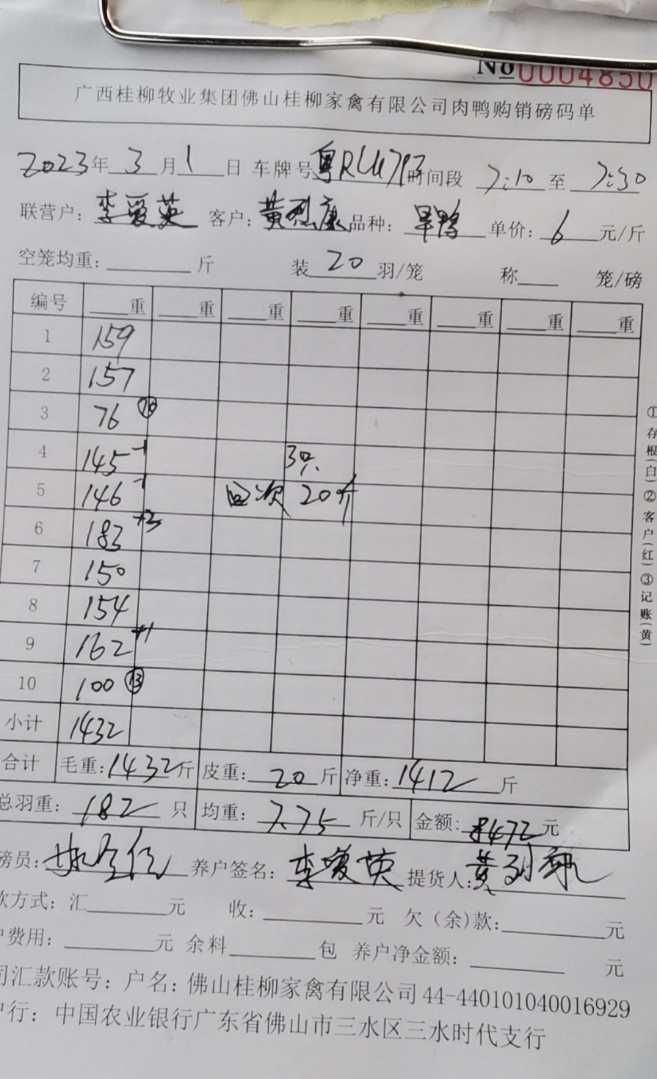 №0004850
广西桂柳牧业集团佛山桂柳家禽有限公司肉鸭购销磅码单
2023年 3 月 1 日 车牌号 粤RU4793 时间段 7:10 至 7:30
联营户: 李爱英 客户: 黄烈康 品种: 旱鸭 单价: 6 元/斤
空笼均重: 斤 装 20 羽/笼 称 笼/磅
编号 重 重 重 重 重 重 重 重
1 159
2 157
3 76 ⑩
4 145 -1 3只
5 146 -1 四次 20斤
6 183 +3
7 150
8 154
9 162 +1
10 100 ⑬
小计 1432
合计 毛重: 1432 斤 皮重: 20 斤 净重: 1412 斤
总羽重: 182 只 均重: 7.75 斤/只 金额: 8472 元
磅员: 养户签名: 李爱英 提货人:
款方式: 汇 元 收: 元 欠(余)款: 元
户费用: 元 余料 包 养户净金额: 元
司汇款账号: 户名: 佛山桂柳家禽有限公司 44-440101040016929
户行: 中国农业银行广东省佛山市三水区三水时代支行
①存根(白)②客户(红)③记账(黄)